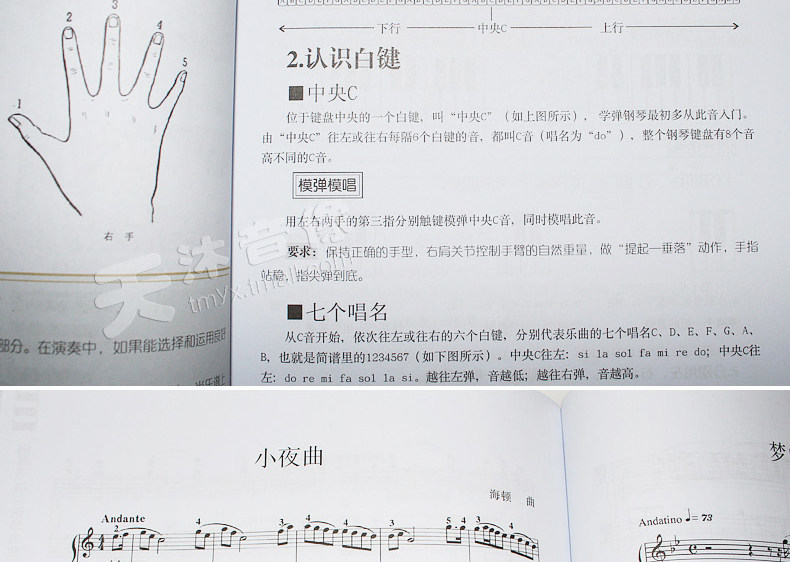 1
2
3
4
5
右 手
部分。在演奏中，如果能选择和运用良好
下行 中央C 上行
2.认识白键
■中央C
位于键盘中央的一个白键，叫“中央C”（如上图所示），学弹钢琴最初多从此音入门。
由“中央C”往左或往右每隔6个白键的音，都叫C音（唱名为“do”），整个钢琴键盘有8个音
高不同的C音。
模弹模唱
用左右两手的第三指分别触键模弹中央C音，同时模唱此音。
要求：保持正确的手型，右肩关节控制手臂的自然重量，做“提起—垂落”动作，手指
站稳，指尖弹到底。
■七个唱名
从C音开始，依次往左或往右的六个白键，分别代表乐曲的七个唱名C、D、E、F、G、A、
B，也就是简谱里的1234567（如下图所示）。中央C往左：si la sol fa mi re do；中央C往
左：do re mi fa sol la si。越往左弹，音越低；越往右弹，音越高。
天沐音像
小夜曲
海顿 曲
Andante
2 4 4 3 5 4 3 4
Andatino ♩= 73